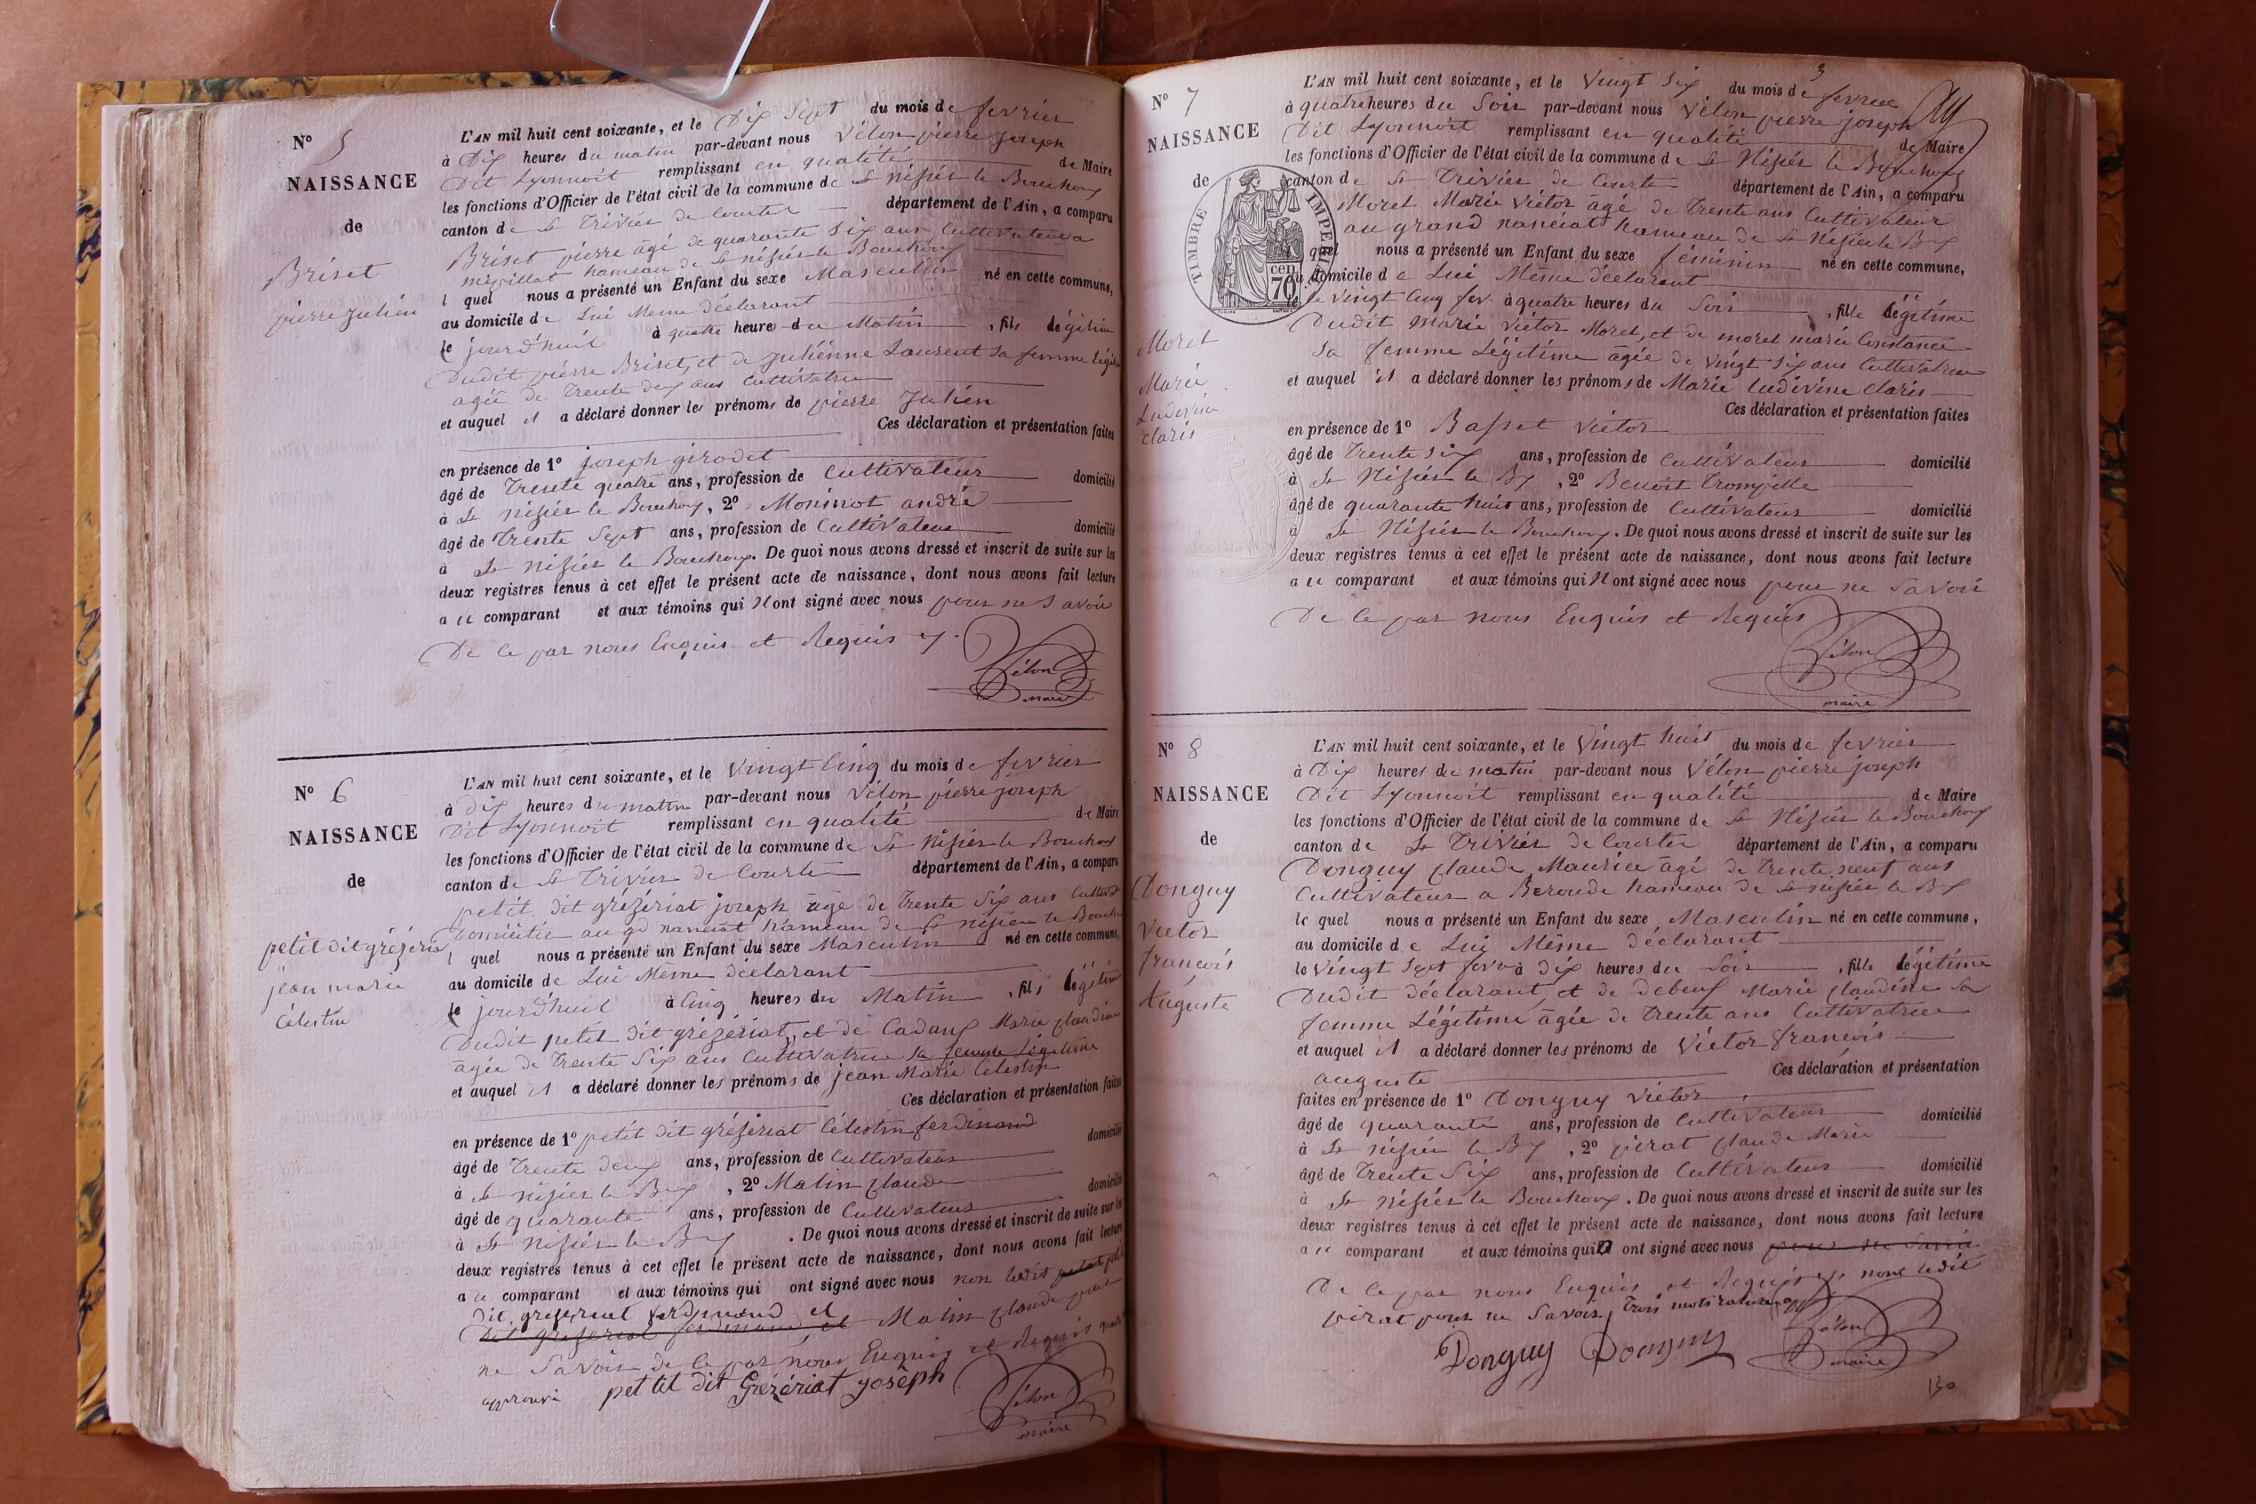 N° 5
NAISSANCE
de
Briset
pierre Julien
L'AN mil huit cent soixante, et le Dix Sept du mois de fevrier
à Dix heures du matin par-devant nous Vélon pierre joseph
Dit Lyonnoit remplissant en qualité de Maire
les fonctions d'Officier de l'état civil de la commune de St Nisiér le Bouchoux
canton de St Triviér de Courtes département de l'Ain, a comparu
Briset pierre âgé de quarante Six ans Cultivateur a
hameau de St nisiér le Bouchoux
l quel nous a présenté un Enfant du sexe Masculin né en cette commune,
au domicile de Lui Meme déclarant
le jourd'huit à quatre heures du Matin , fils légitime
Dudit pierre Briset, et de Juliénne Laurent sa femme Légitime
agée de Trente deux ans Cultivatrice
et auquel il a déclaré donner les prénoms de pierre Julien
Ces déclaration et présentation faites
en présence de 1° joseph girodet
âgé de Trente quatre ans, profession de Cultivateur domicilié
à St nisiér le Bouchoux, 2° Moninot andré
âgé de Trente Sept ans, profession de Cultivateur domicilié
à St nisiér le Bouchoux. De quoi nous avons dressé et inscrit de suite sur les
deux registres tenus à cet effet le présent acte de naissance, dont nous avons fait lecture
au comparant et aux témoins qui N ont signé avec nous pour ne Savoir
De Ce par nous Enquis et Requis
Vélon
maire
N° 6
NAISSANCE
de
petit dit grézériat
jean marie
Célestin
L'AN mil huit cent soixante, et le Vingt Cinq du mois de fevrier
à dix heures du matin par-devant nous Vélon piérre joseph
Dit Lyonnoit remplissant en qualité de Maire
les fonctions d'Officier de l'état civil de la commune de St Nisiér le Bouchoux
canton de St Triviér de Courtes département de l'Ain, a comparu
petit dit grézériat joseph âgé de Trente Six ans
Domicilié au gd nanciat hameau de St nisiér le Bouchoux
l quel nous a présenté un Enfant du sexe Masculin né en cette commune,
au domicile de Lui Même déclarant
le jourd'huit à Cinq heures du Matin , fils légitime
Dudit petit dit grézériat, et de Cadaux Marie Claudine
âgée de Trente Six ans Cultivatrice sa femme Légitime
et auquel il a déclaré donner les prénoms de jean Marie Célestin
Ces déclaration et présentation faites
en présence de 1° petit dit grézériat Célestin ferdinand
âgé de Trente deux ans, profession de Cultivateur domicilié
à St nisiér le Bx , 2° Matin Claude
âgé de quarante ans, profession de Cultivateur domicilié
à St Nisiér le Bx . De quoi nous avons dressé et inscrit de suite sur les
deux registres tenus à cet effet le présent acte de naissance, dont nous avons fait lecture
au comparant et aux témoins qui ont signé avec nous non ledit petit
dit grézériat ferdinand et
Dit grézériat ferdinand, et Matin Claude pour
ne Savoir de Ce par nous Enquis et Requis
approuvé petit dit Grézériat joseph
Vélon
maire
3
N° 7
NAISSANCE
de
TIMBRE IMPERIAL
70 cen
Moret
Marie
Ludivine
claris
L'AN mil huit cent soixante, et le Vingt Six du mois de fevrier
à quatre heures du Soir par-devant nous Vélon pierre joseph
Dit Lyonnoit remplissant en qualité de Maire
les fonctions d'Officier de l'état civil de la commune de St Nisiér le Bouchoux
canton de St Triviér de Courtes département de l'Ain, a comparu
Moret Marie Victor agé de Trente ans Cultivateur
au grand nanciat hameau de St Nisiér le Bx
quel nous a présenté un Enfant du sexe féminin né en cette commune,
au domicile de Lui Même déclarant
le Vingt Cinq fev. à quatre heures du Soir , fille légitime
Dudit Marie Victor Moret, et de moret marie Constance
Sa femme Légitime âgée de Vingt Six ans Cultivatrice
et auquel il a déclaré donner les prénoms de Marie Ludivine Claris
Ces déclaration et présentation faites
en présence de 1° Basset Victor
âgé de Trente Six ans, profession de Cultivateur domicilié
à St Nisiér le Bx , 2° Benoit Trompille
âgé de quarante huit ans, profession de Cultivateur domicilié
à St Nisiér le Bouchoux. De quoi nous avons dressé et inscrit de suite sur les
deux registres tenus à cet effet le présent acte de naissance, dont nous avons fait lecture
au comparant et aux témoins qui N ont signé avec nous pour ne Savoir
De Ce par nous Enquis et Requis
Vélon
maire
N° 8
NAISSANCE
de
Donguy
Victor
françois
Auguste
L'AN mil huit cent soixante, et le Vingt huit du mois de fevrier
à Dix heures de matin par-devant nous Vélon pierre joseph
Dit Lyonnoit remplissant en qualité de Maire
les fonctions d'Officier de l'état civil de la commune de St Nisiér le Bouchoux
canton de St Triviér de Courtes département de l'Ain, a comparu
Donguy Claude Maurice âgé de Trente neuf ans
Cultivateur a Beroude hameau de St nisiér le Bx
le quel nous a présenté un Enfant du sexe Masculin né en cette commune,
au domicile de Lui Même déclarant
le Vingt Sept fevr à Dix heures du Soir , fille légitime
Dudit déclarant, et de debeuf Marie Claudine sa
femme Légitime âgée de Trente ans Cultivatrice
et auquel il a déclaré donner les prénoms de Victor françois
auguste Ces déclaration et présentation
faites en présence de 1° Donguy Victor
âgé de quarante ans, profession de Cultivateur domicilié
à St nisiér le Bx , 2° pirat Claude Marie
âgé de Trente Six ans, profession de Cultivateur domicilié
à St Nisiér le Bouchoux. De quoi nous avons dressé et inscrit de suite sur les
deux registres tenus à cet effet le présent acte de naissance, dont nous avons fait lecture
au comparant et aux témoins qui ont signé avec nous pour ne Savoir
De Ce par nous Enquis et Requis non ledit
pirat pour ne Savoir, Trois mots raturés
Donguy Donguy Vélon
maire
130